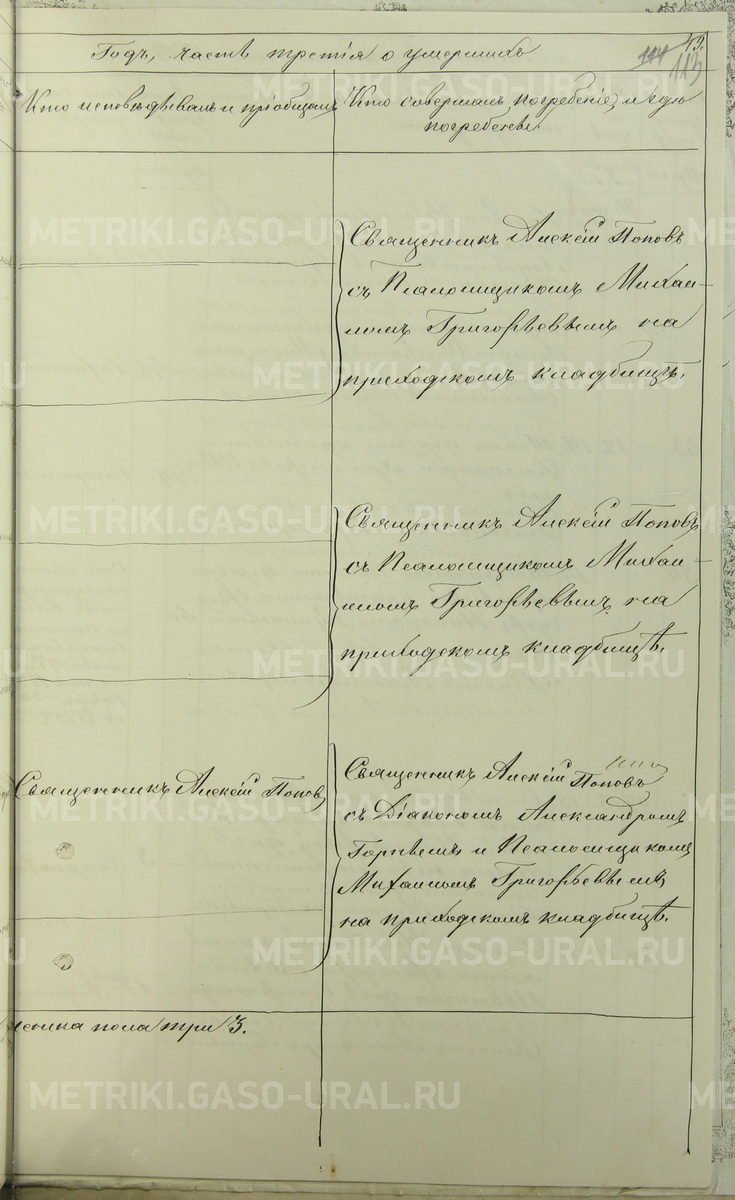 Годъ, часть третія о умершихъ
43.
114
113
Кто исповѣдывалъ и пріобщалъ
Кто совершалъ погребеніе, и гдѣ
погребены.
Священникъ Алексій Поповъ
съ Псаломщикомъ Михаи-
ломъ Григорьевымъ на
приходскомъ кладбищѣ.
Священникъ Алексій Поповъ
съ Псаломщикомъ Михаи-
ломъ Григорьевымъ на
приходскомъ кладбищѣ.
Священникъ Алексій Поповъ
Священникъ Алексій Поповъ
съ Діакономъ Александромъ
и Псаломщикомъ
Михаиломъ Григорьевымъ
на приходскомъ кладбищѣ.
пола три 3.
METRIKI.GASO-URAL.RU